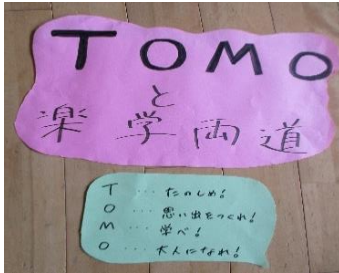 TOMO
と
楽学両道
T … たのしめ！
O … 思い出をつくれ！
M … 学べ！
O … 大人になれ！